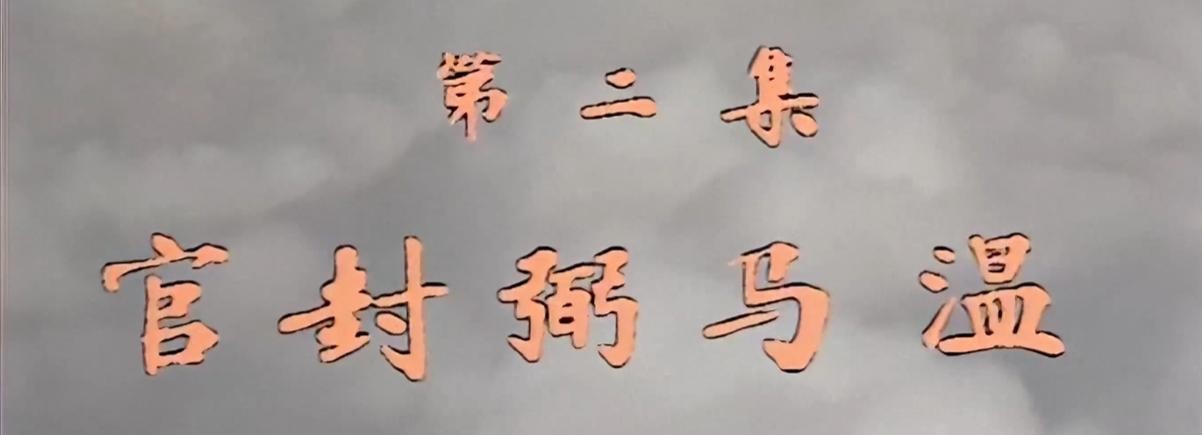 第二集
官封弼马温